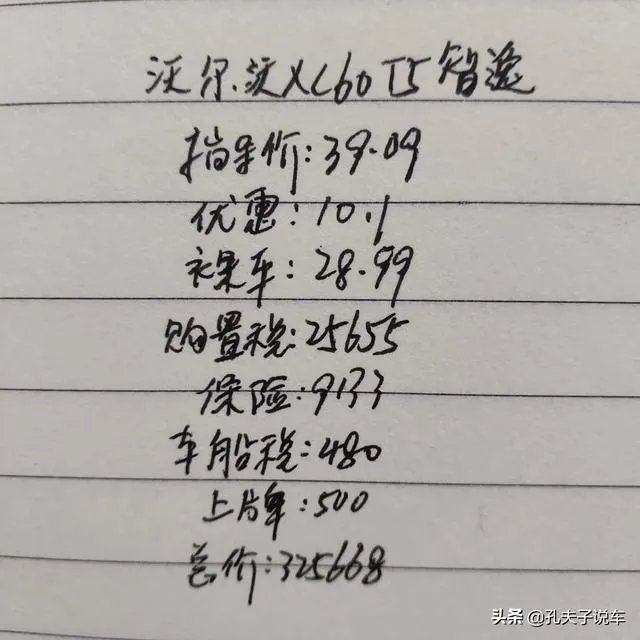 沃尔沃XC60 T5智逸
指导价:39.09
优惠:10.1
裸车:28.99
购置税:25655
保险:9133
车船税:480
上牌:500
总价:325668
头条 @孔夫子说车